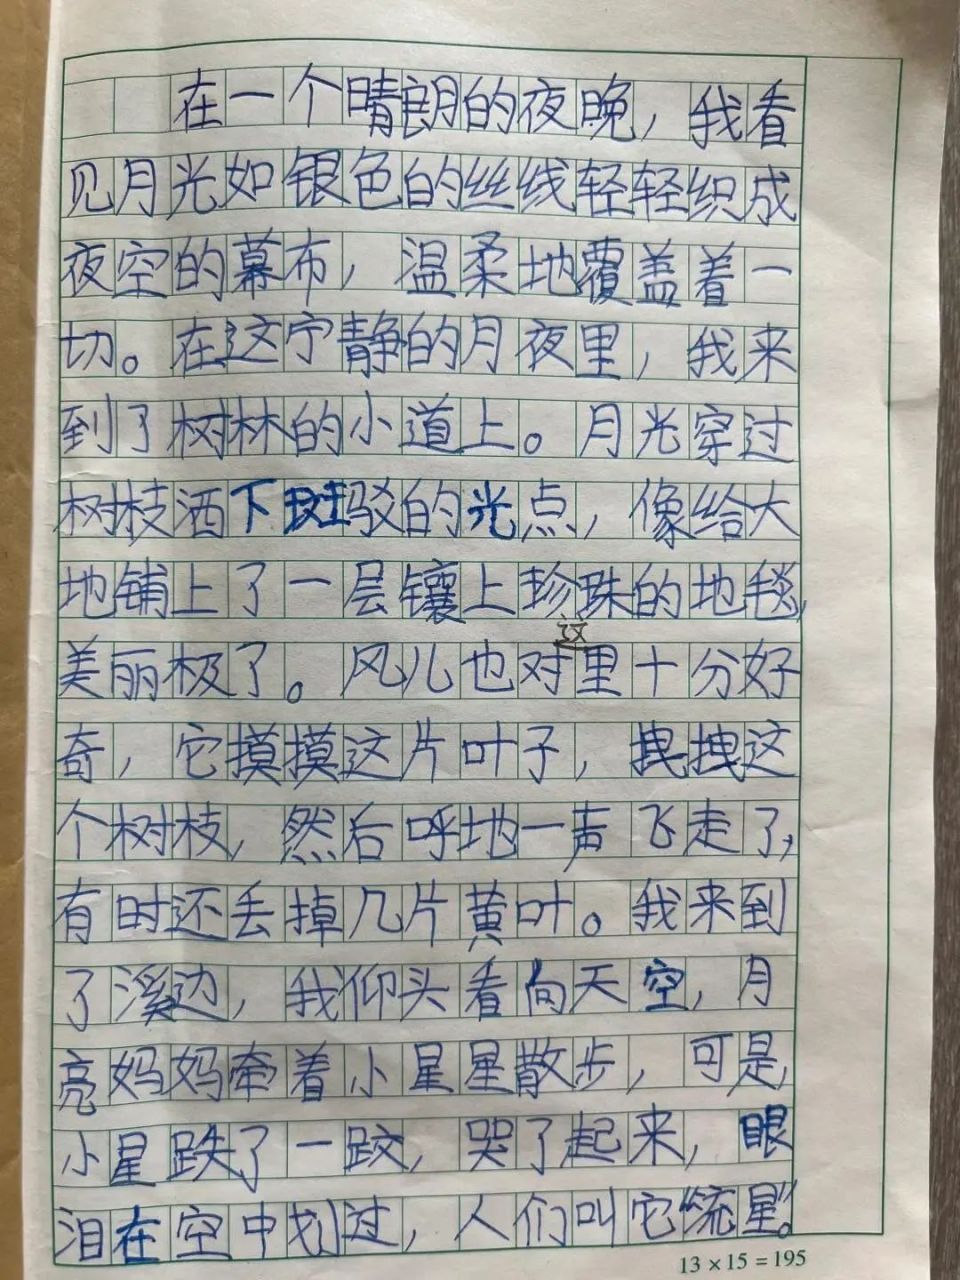 在一个晴朗的夜晚，我看
见月光如银色的丝线轻轻织成
夜空的幕布，温柔地覆盖着一
切。在这宁静的月夜里，我来
到了树林的小道上。月光穿过
树枝洒下斑驳的光点，像给大
地铺上了一层镶上珍珠的地毯，
美丽极了。风儿也对这里十分好
奇，它摸摸这片叶子，拽拽这
个树枝，然后呼地一声飞走了，
有时还丢掉几片黄叶。我来到
了溪边，我仰头看向天空，月
亮妈妈牵着小星星散步，可是，
小星跌了一跤，哭了起来，眼
泪在空中划过，人们叫它“流星”。
13×15=195